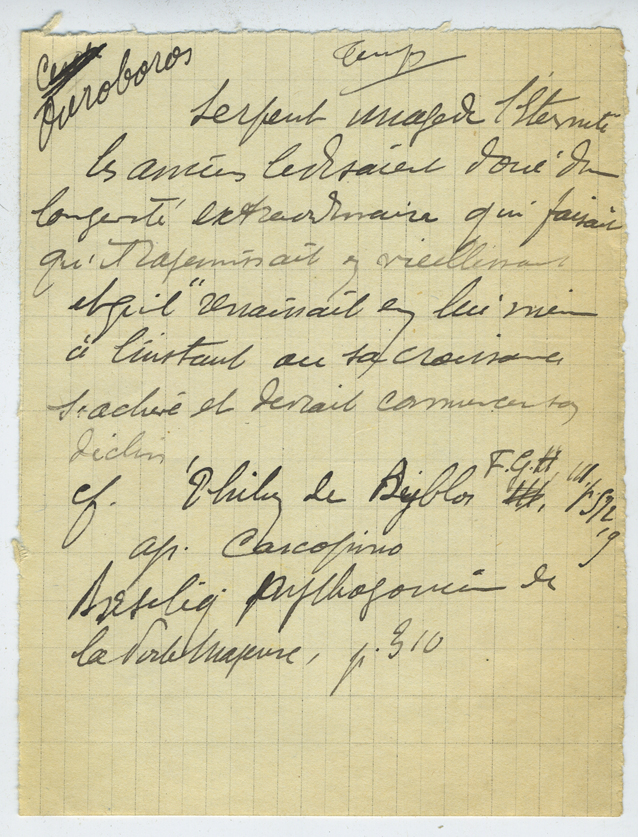 Ouroboros
Temps
Serpent image de l'éternité
les anciens le disaient doué d'un
longevité extraordinaire qui faisait
qu'il rajeunissait en vieillissant
et qu'il "renaissait en lui mem
à l'instant ou sa croissance
s'achevé et devrait commencer son
déclin
cf. Philon de Byblos F.G.H, III, p. 572
ap. Carcopino
Basiliq pythagoricien de
la Porte Majeure, p. 310